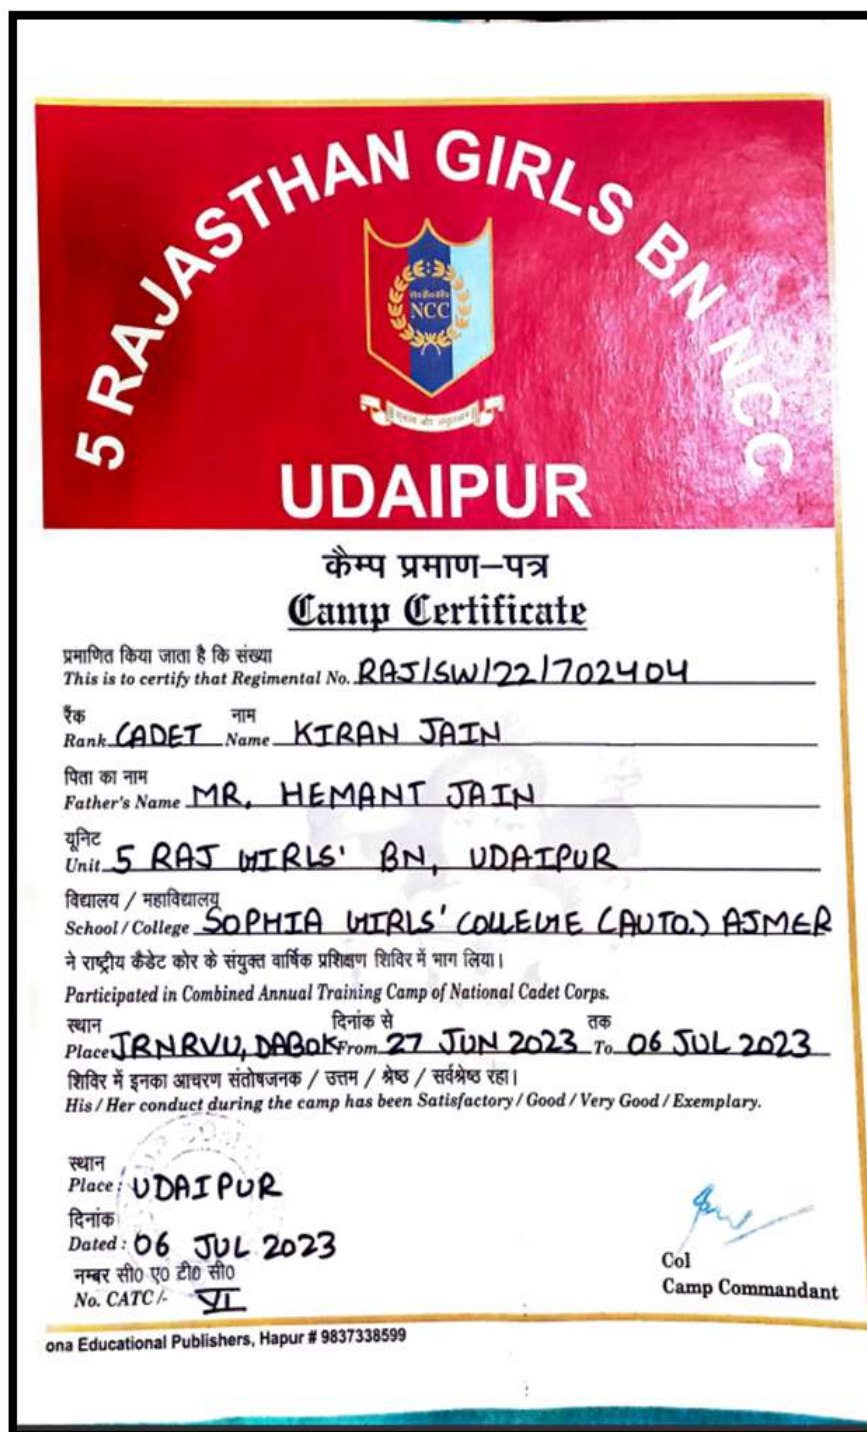 5 RAJASTHAN GIRLS BN NCC
NCC
एकता और अनुशासन
UDAIPUR
कैम्प प्रमाण–पत्र
Camp Certificate
प्रमाणित किया जाता है कि संख्या
This is to certify that Regimental No. RAJ/SW/22/702404
रैंक नाम
Rank CADET Name KIRAN JAIN
पिता का नाम
Father's Name MR. HEMANT JAIN
यूनिट
Unit 5 RAJ GIRLS' BN, UDAIPUR
विद्यालय / महाविद्यालय
School / College SOPHIA GIRLS' COLLEGE (AUTO.) AJMER
ने राष्ट्रीय कैडेट कोर के संयुक्त वार्षिक प्रशिक्षण शिविर में भाग लिया।
Participated in Combined Annual Training Camp of National Cadet Corps.
स्थान दिनांक से तक
Place JRNRVU, DABOK From 27 JUN 2023 To 06 JUL 2023
शिविर में इनका आचरण संतोषजनक / उत्तम / श्रेष्ठ / सर्वश्रेष्ठ रहा।
His / Her conduct during the camp has been Satisfactory / Good / Very Good / Exemplary.
स्थान
Place : UDAIPUR
दिनांक
Dated : 06 JUL 2023
नम्बर सी0 ए0 टी0 सी0
No. CATC /- VI
Col
Camp Commandant
ona Educational Publishers, Hapur # 9837338599